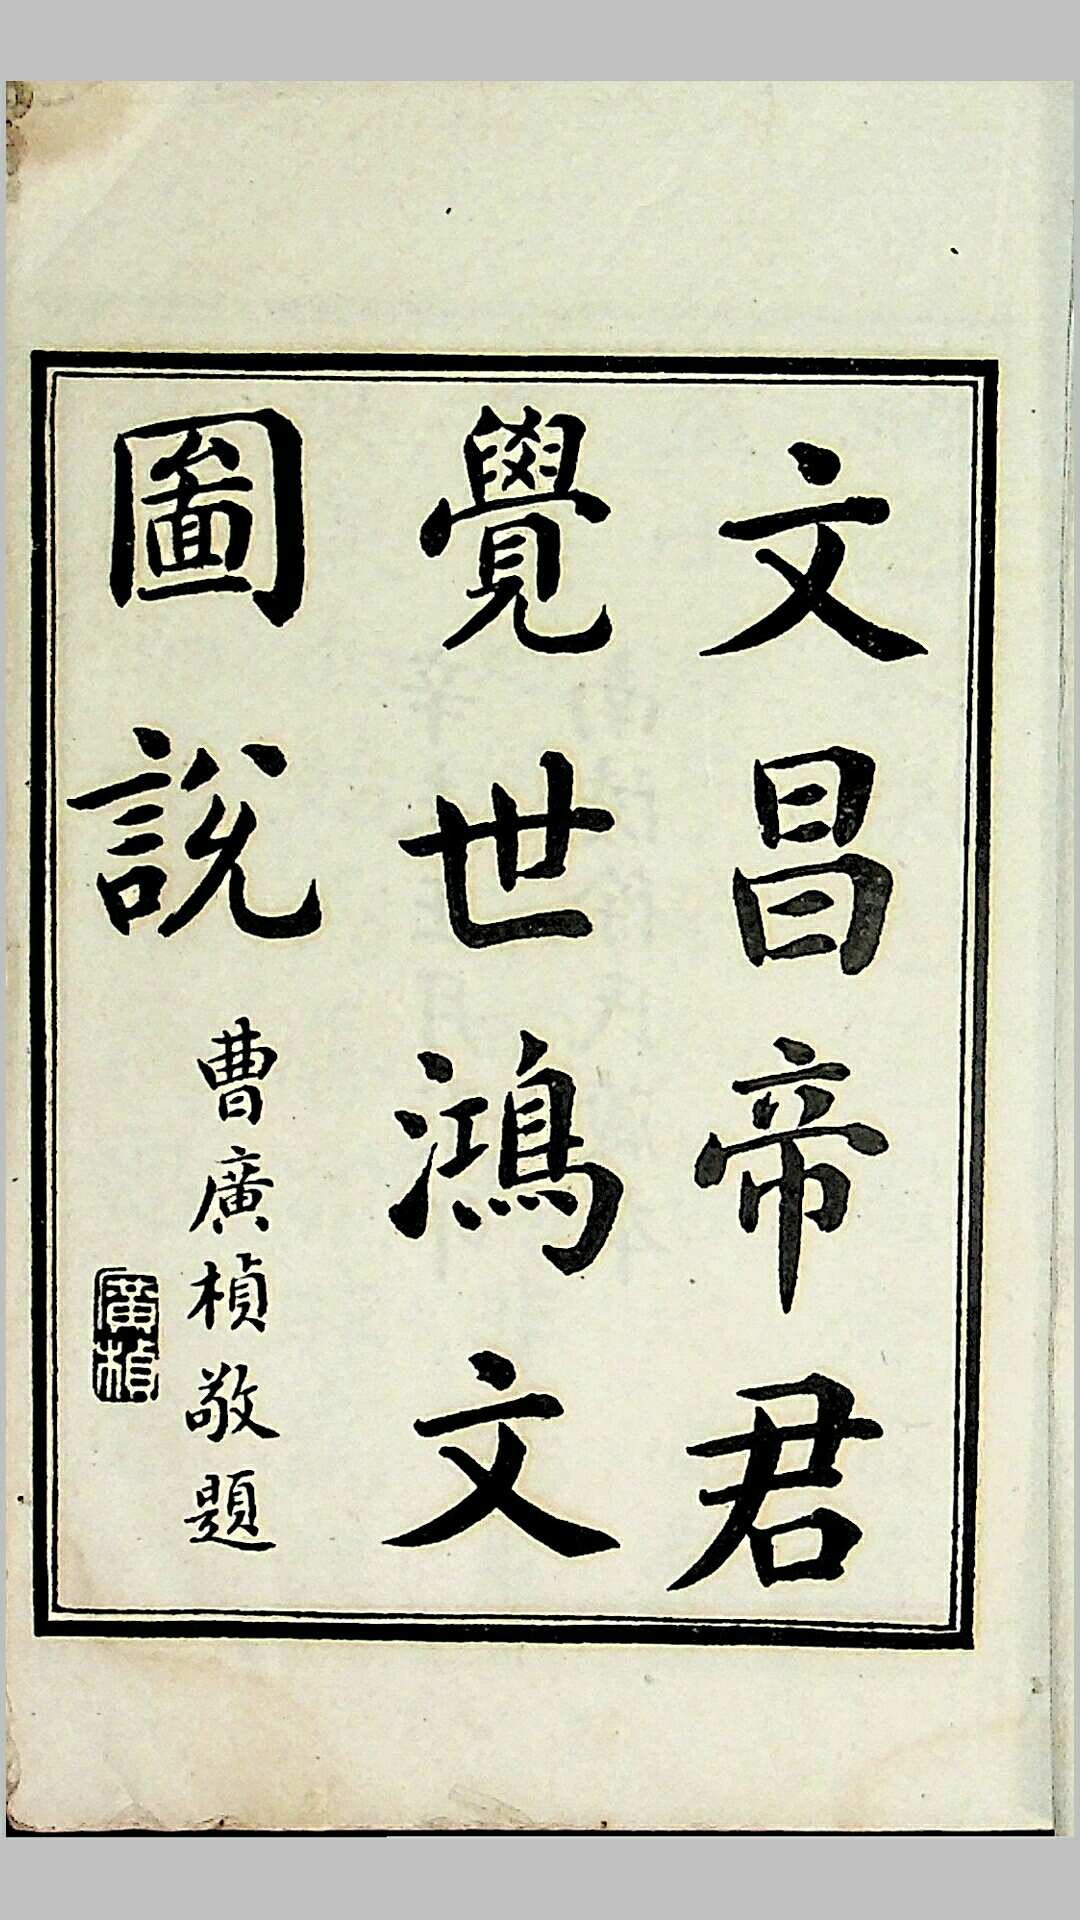 文昌帝君
覺世鴻文
圖說
曹廣楨敬題
廣楨